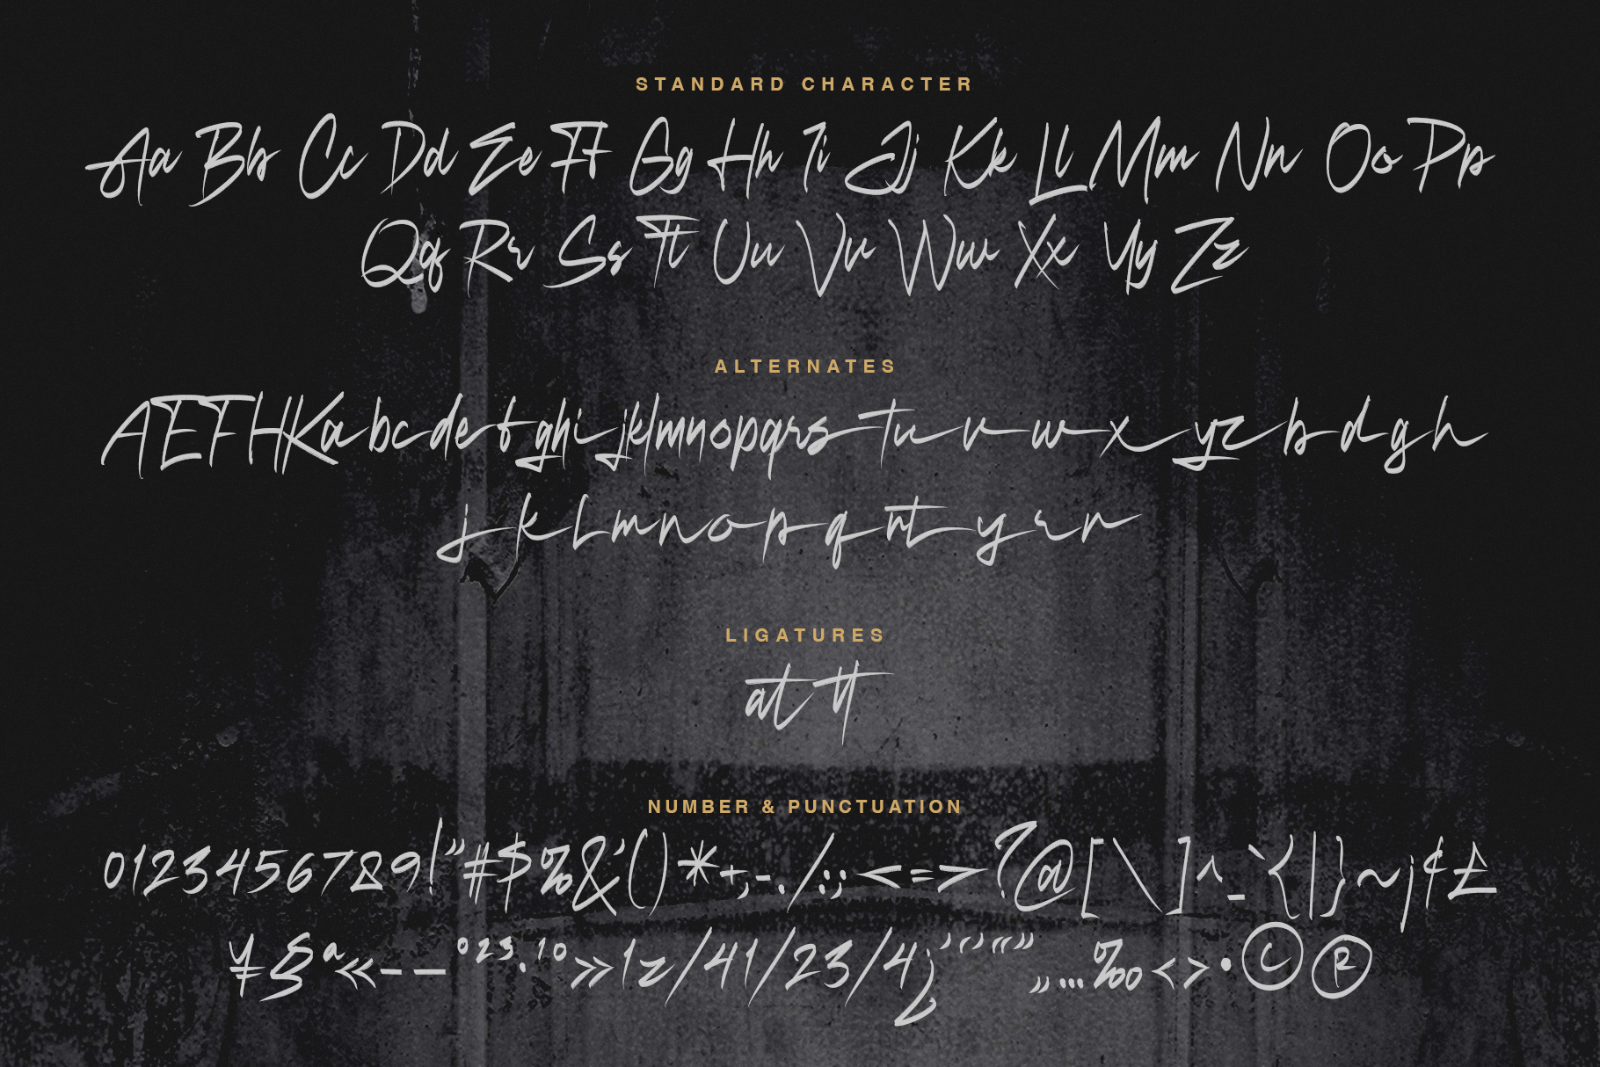 STANDARD CHARACTER
Aa Bb Cc Dd Ee Ff Gg Hh Ii Jj Kk Ll Mm Nn Oo Pp
Qq Rr Ss Tt Uu Vv Ww Xx Yy Zz
ALTERNATES
AEFHKabcdefghijklmnopqrstuvwxyzbdgh
jklmnopqrtyrn
LIGATURES
at tt
NUMBER & PUNCTUATION
0123456789!"#$%&'()*+,-./:;<=>?@[\]^_`{|}~¡¢£
¥§ª«–—º²³.¹º»1⁄41⁄23⁄4¿’‘’“”„…‰‹›•©®